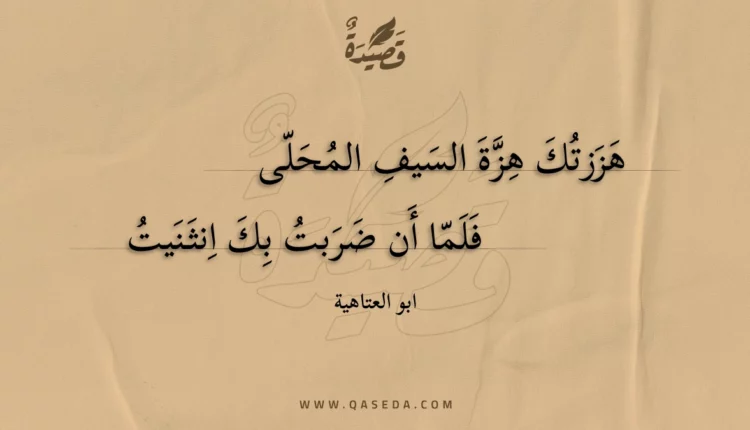 قَصِيدَةٌ
هَزَزتُكَ هِزَّةَ السَيفِ المُحَلّى
فَلَمّا أَن ضَرَبتُ بِكَ اِنثَنَيتُ
ابو العتاهية
WWW.QASEDA.COM